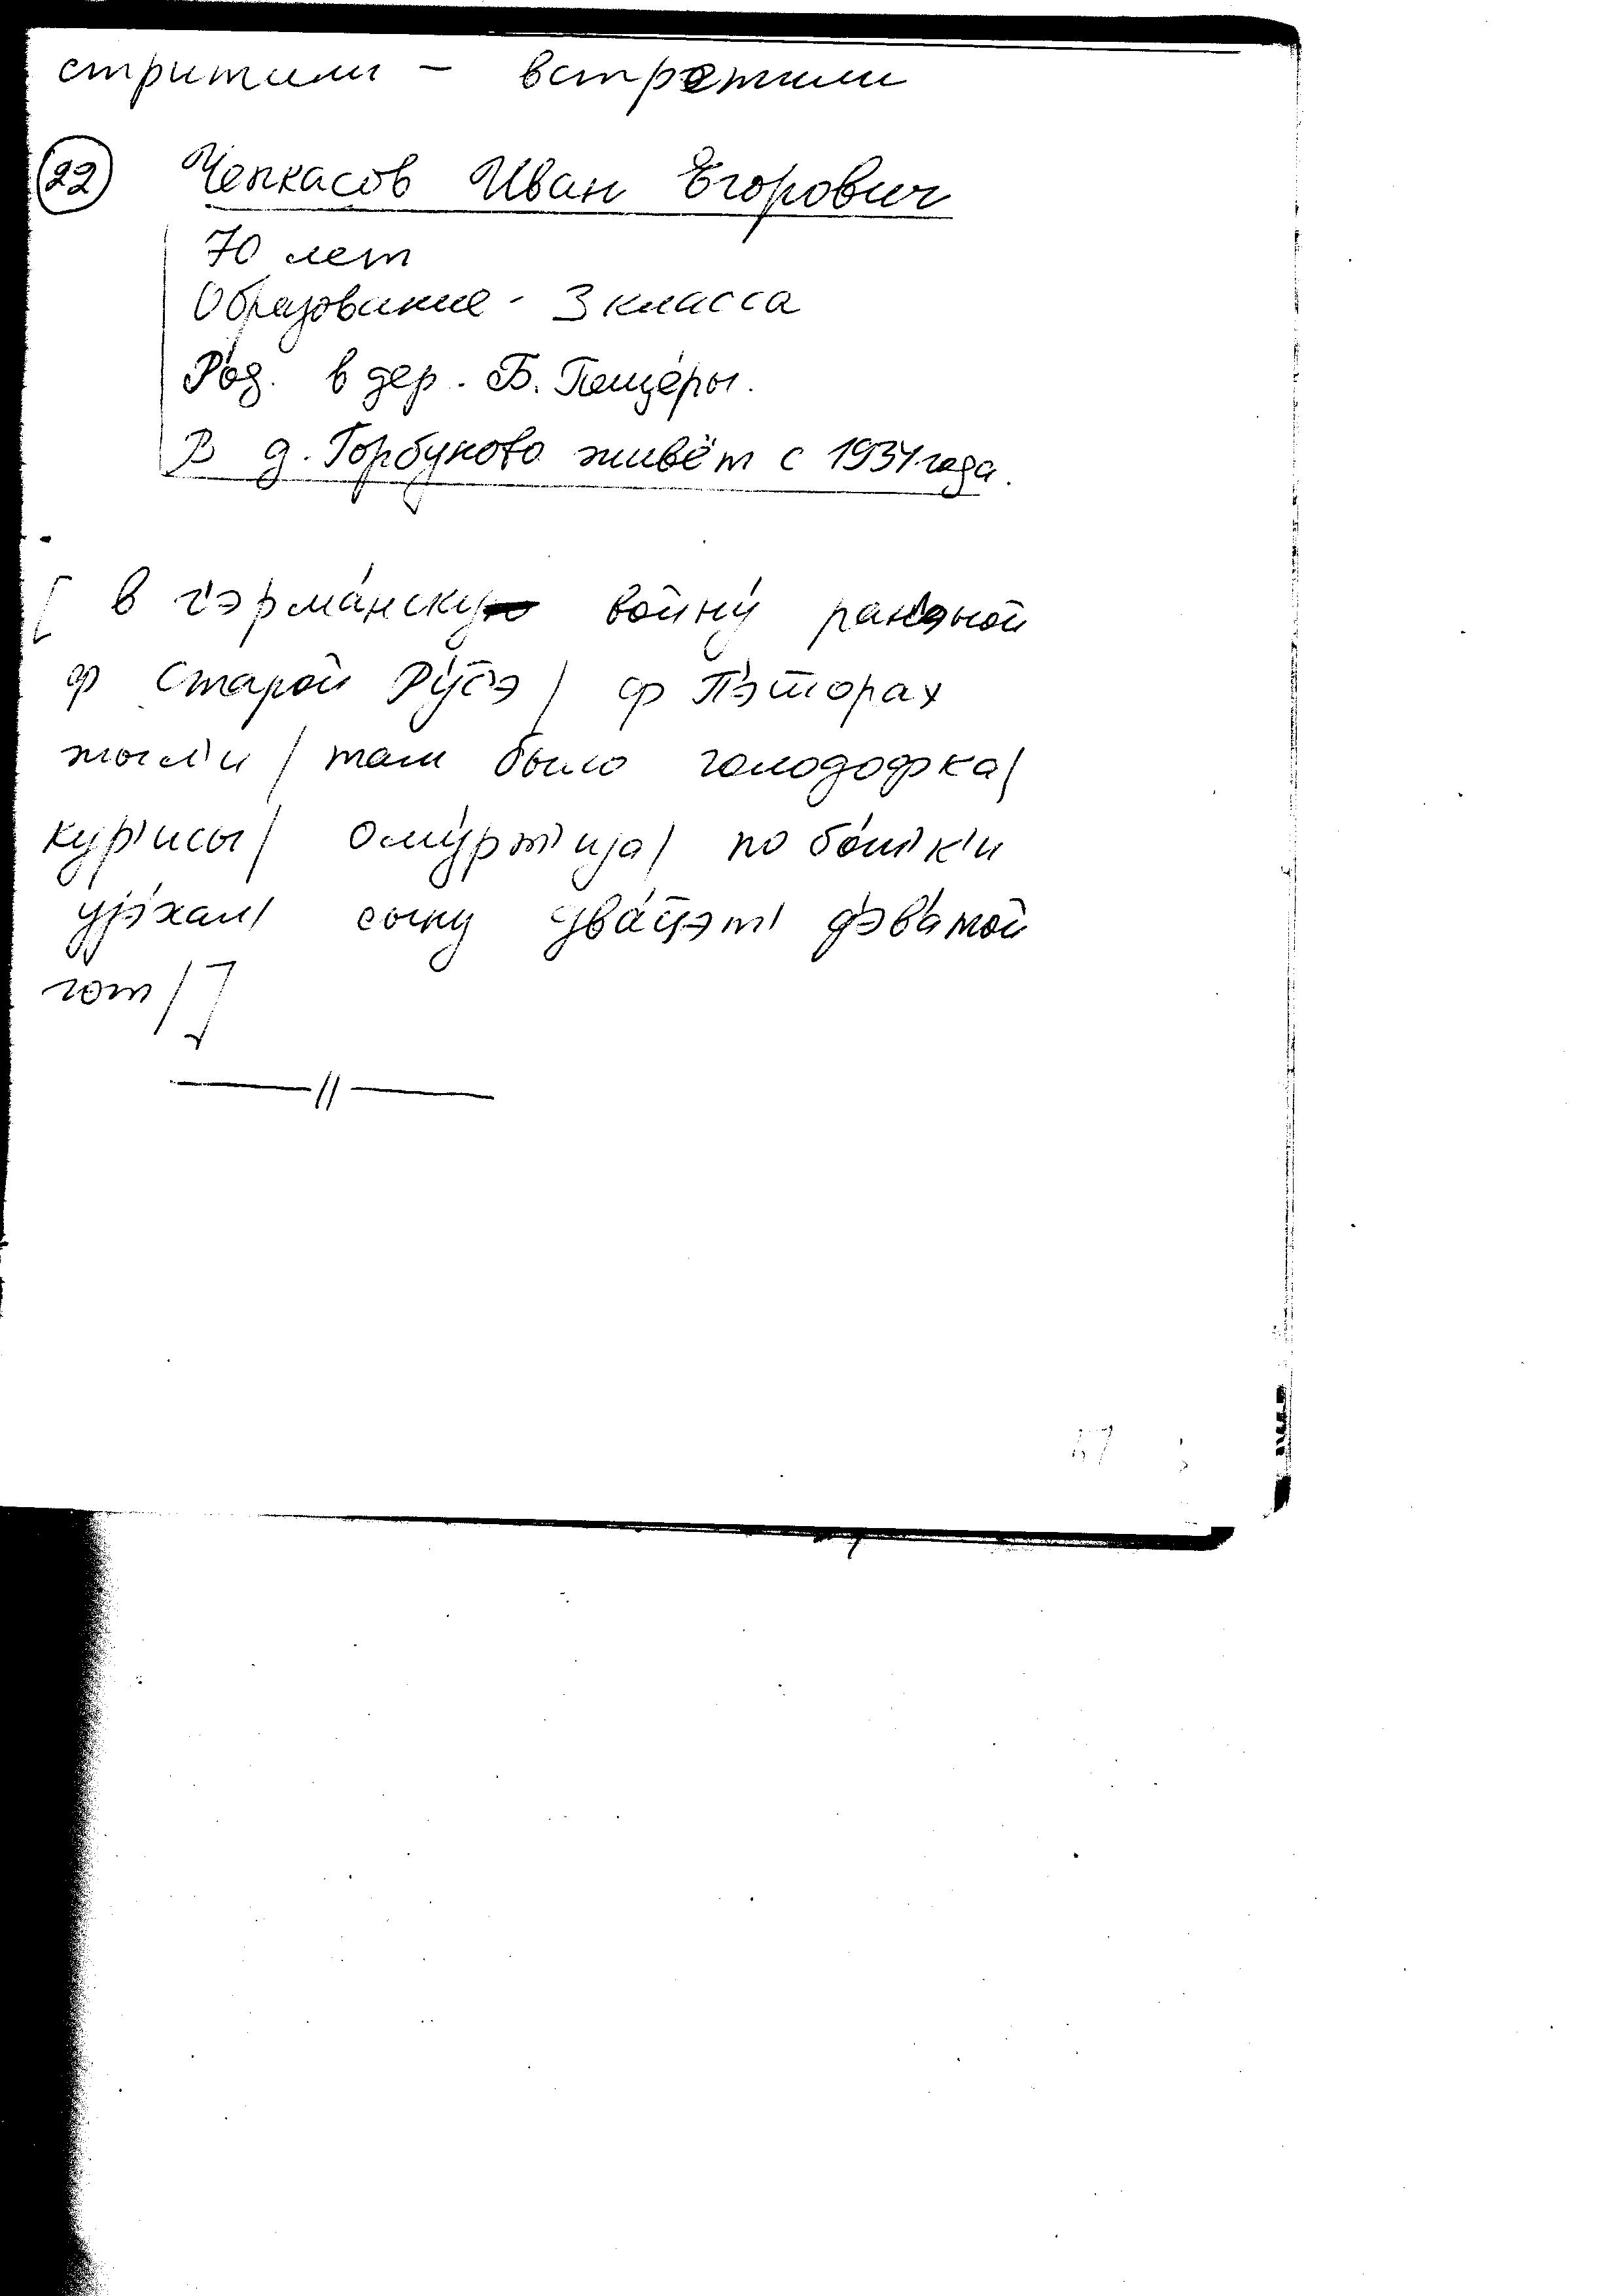 стритили - встретили
22 Чепкасов Иван Егорович
70 лет
Образование - 3 класса
Род. в дер. Б. Пещеры.
В д. Горбуново живёт с 1931 года.
[ в г'эрма́нскую войну́ ран'эной
ф Старой Ру́с̄э / ф П'э́т̄орах
жыл'и / там было голодофка /
/ / по бо́шк'и
уjэ́хал / сыну два́ц̄эт' д'эв'а́той
гот / ]
— // —